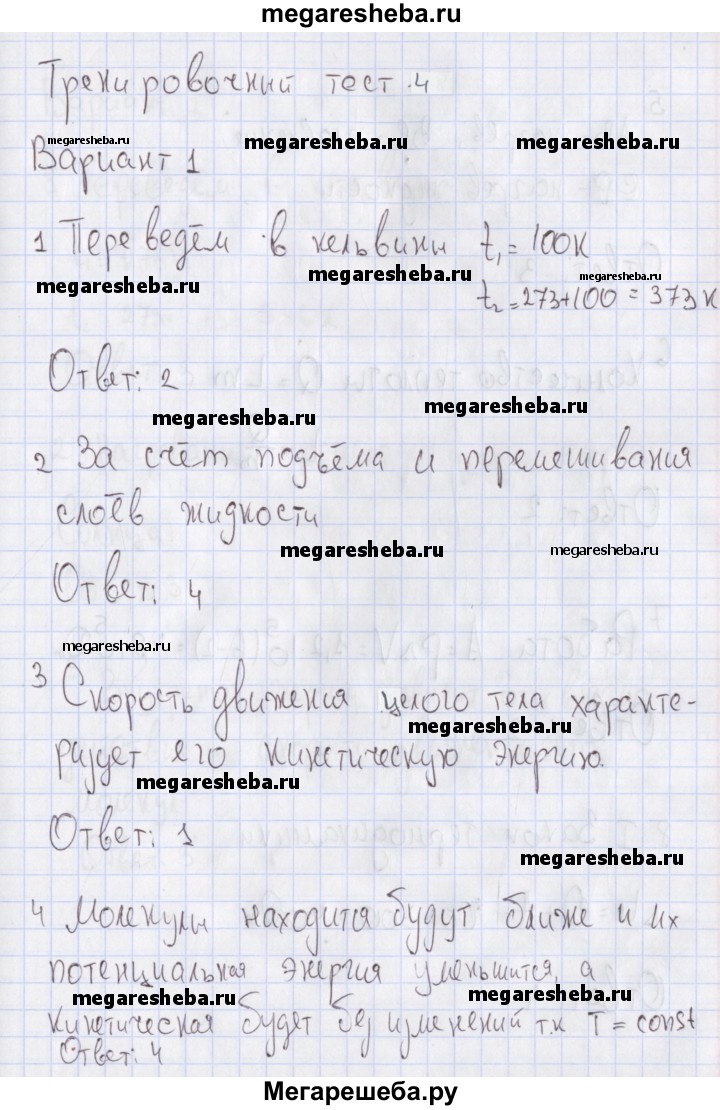 megaresheba.ru
Тренировочный тест 4
megaresheba.ru megaresheba.ru megaresheba.ru
Вариант 1
1 Переведём в кельвины t₁ = 100К
megaresheba.ru megaresheba.ru megaresheba.ru
t₂ = 273+100 = 373 К
Ответ: 2
megaresheba.ru megaresheba.ru
2 За счёт подъёма и перемешивания
слоёв жидкости
megaresheba.ru megaresheba.ru
Ответ: 4
megaresheba.ru
3 Скорость движения целого тела характе-
megaresheba.ru
ризует его кинетическую энергию.
megaresheba.ru
Ответ: 1
megaresheba.ru
4 Молекулы находится будут ближе и их
потенциальная энергия уменьшится, а
megaresheba.ru megaresheba.ru
кинетическая будет без изменений т.к T = const
Ответ: 4
Мегарешеба.ру